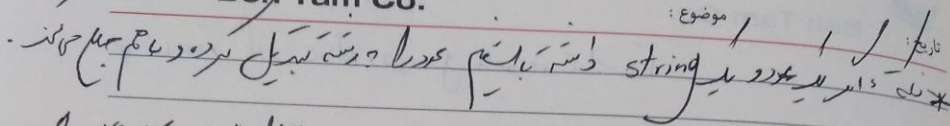 Beh Tam Co.
موضوع:
تاریخ:
* نکته: اگر یک عدد و یک string داشته باشیم عدد را به رشته تبدیل کرده و با هم جمع می‌کند.